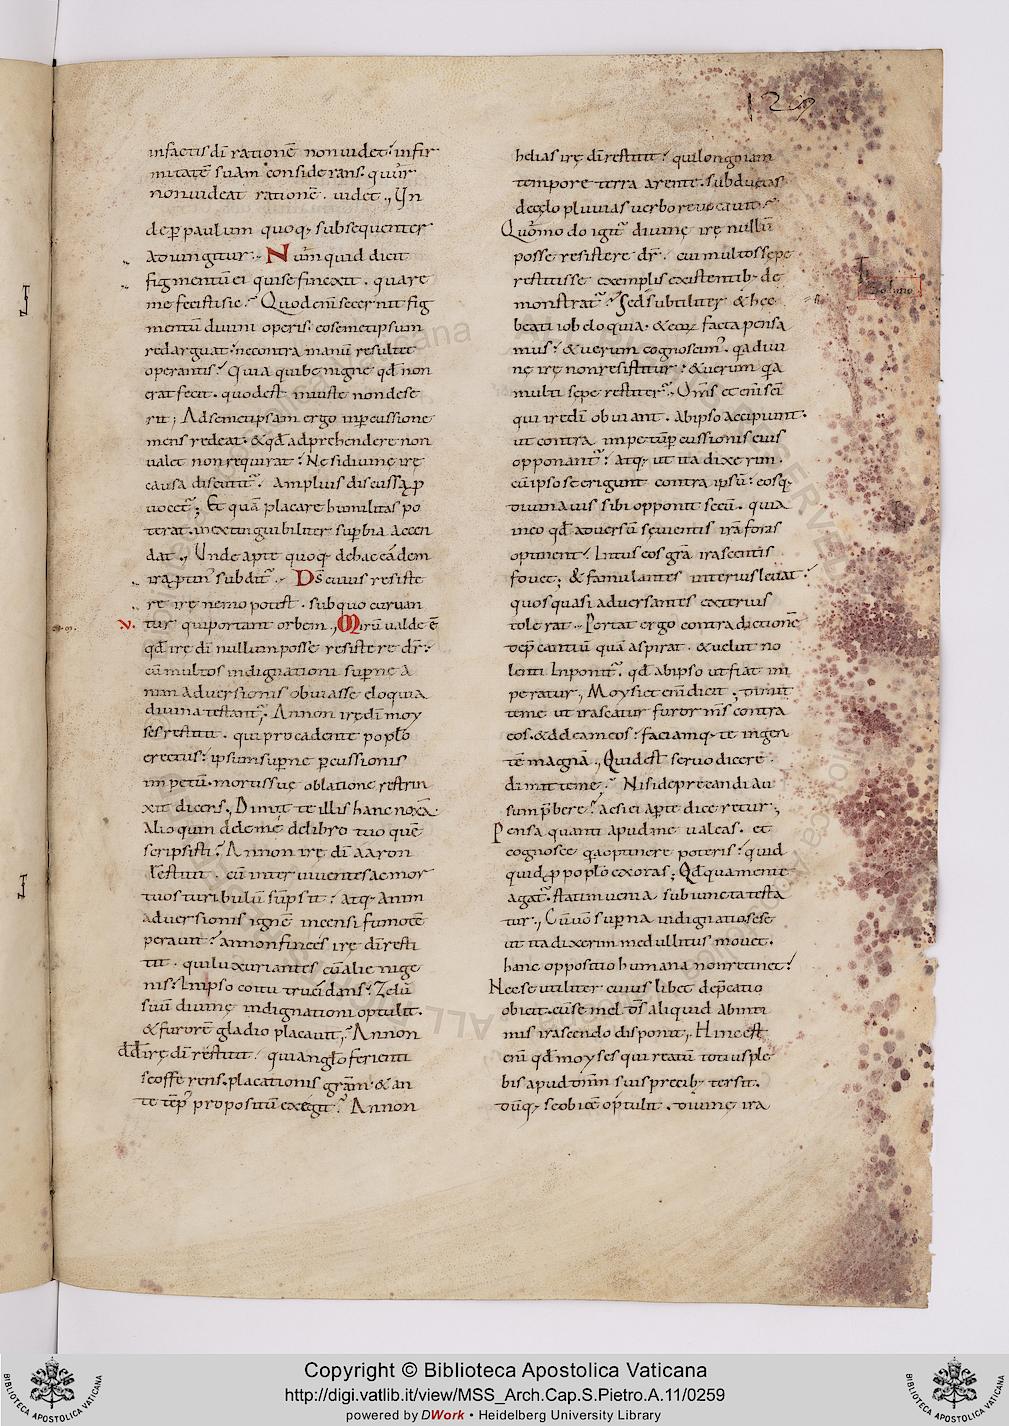 129
infactis di rationē non uidet? infir
mitatē suam considerans. q̇ uīr
non uideat rationē. uidet., Un
de ꝑ paulum quoq; subsequenter
adiungitur:· Num quid dicit
figmentum ei qui se finexit. quare
me fecisti sic? Quod cm̄ secernit fig
mentū diuini operis. eosemetipsum
redarguat. ne contra manū resultet
operantis? Quia qui benigne qd̄ non
erat fecit. quod est iniuste non dese
rit; Ad semetipsam ergo inꝑcussione
mens redeat. & qd̄ adprehendere non
ualet non requirat? Ne si diuinę irę
causa discutit̄. amplius discussa ꝓ
uocet̄; Et quā placare humilitas po
terat. inextinguibiliter supbia accen
dat., Unde apte quoq; de hac eādem
ira ꝑtin̄ subdit̄.· Ds̄ cuius resiste
re irę nemo potest. sub quo curuan
tur qui portant orbem., Mirū ualde ē
qd̄ irę di nullum posse resistere dr̄:
cū multos indignationi supnę a
nim aduersionis obuiasse eloquia
diuina testant̄. An non irę di moy
ses restitit. qui pro cadente poplo
erectus? ipsum supnę ꝑcussionis
impetū. mortis suę oblatione restrin
xit dicens., Dimitte illis hanc noxā.
Alioquin dele me de libro tuo quē
scripsisti? An non irę di aaron
restitit. cū inter uiuentes ac mor
tuos turibulum sūpsit? atq; anim
aduersionis ignē incensi fumo tē
perauit? an non finees irę di resti
tit. qui luxuriantes cū alienige
nis? In ipso coitu trucidans? Zelū
suū diuinę indignationi optulit.
& furorē gladio placauit? An non
dd irę di restitit? qui anglo ferienti
se offerens. placationis grām. & an
te tēp̄ propositum exegit? An non
helias irę di restitit? qui longo iam
tempore terra arente. subductas
de cęlo pluuias uerbo reuocauit?
Quom̊do igit̄ diuinę irę nullū
posse resistere dr̄. cui multos sępe
restitisse exemplis existentib; de
monstrat̄? Sed si subtiliter & hęc
beati iob eloquia. & eoꝝ facta pensa
mus? & uerum cognoscim̄. q̇a diui
nę irę non resistitur? & uerum q̇a
multi sepe restiter̄. Om̄s etenim scī
qui irę di obuiant. Ab ipso accipiunt.
ut contra impetū ꝑcussionis eius
opponant̄? atq; ut ita dixerim.
cū ipso se erigunt contra ipsū: eosq;
diuina uis sibi opponit secū. quia
in eo qd̄ aduersū sęuientis irā foras
optinent? Intus eos grā irascentis
fouet; & famulantes interius leuat?
quos quasi aduersantes exterius
tolerat., Portat ergo contradictionē
depcantiū quā aspirat. & uelut no
lenti inponit̄. qd̄ ab ipso ut fiat im
peratur., Moysi et enī dicit; dimit
te me ut irascatur furor m̄s contra
eos. & deleam eos? faciamq; te in gen
tē magnā., Quid est seruo dicere.
dimitte me? Nisi deprecandi au
sum p̄bere? ac si ei aꝑte diceretur;
Pensa quanti apud me ualeas. et
cognosce q̇a optinere poteris? quid
quid ꝓ poplo exoras; Qd̄ qua mente
agat̄. statim uenia subiuncta testa
tur., Cū uō supna indignatio sese
ut ita dixerim medullitus mouet.
hanc oppositio humana non retinet?
Nec se utiliter cuiuslibet depcatio
obicit. cū semel ds̄ aliquid ab inti
mis irascendo disponit., Hinc est
enī qd̄ moyses qui reatū totius ple
bis apud dnm̄ suis precib; tersit.
dūq; se obicē optulit. diuinę ira
Copyright © Biblioteca Apostolica Vaticana
http://digi.vatlib.it/view/MSS_Arch.Cap.S.Pietro.A.11/0259
powered by DWork • Heidelberg University Library
BIBLIOTECA APOSTOLICA VATICANA
BIBLIOTECA APOSTOLICA VATICANA